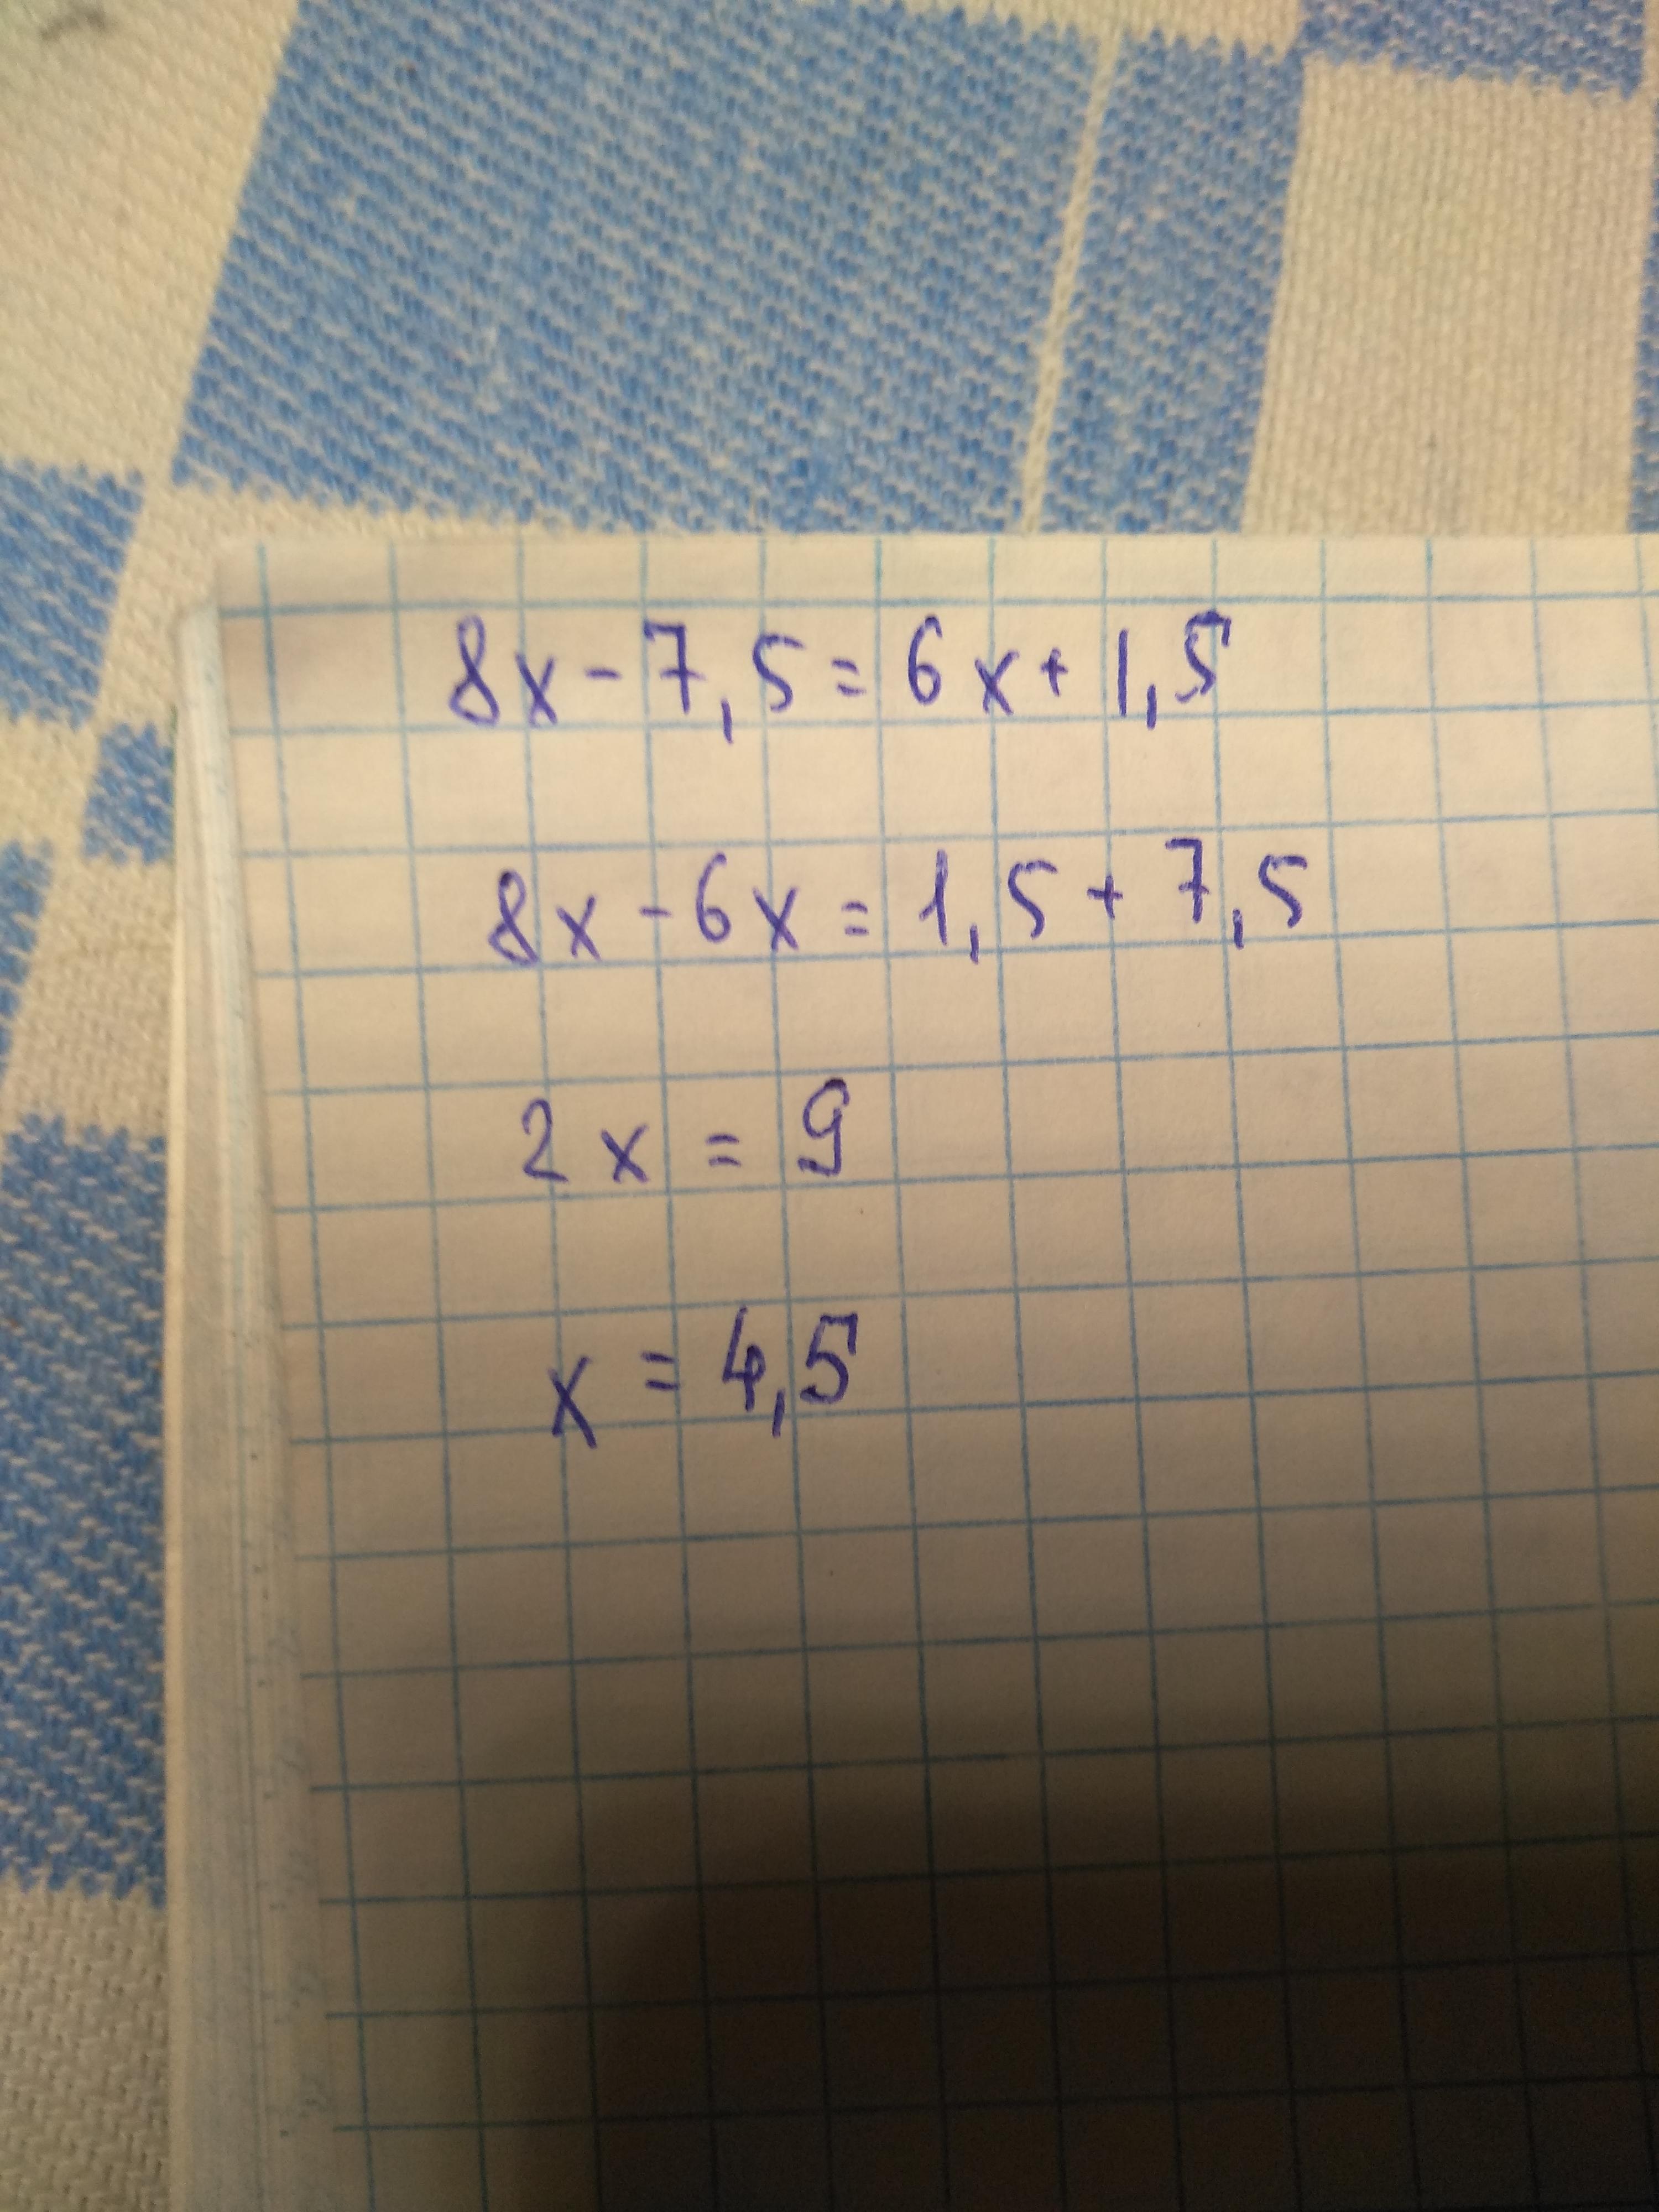 8x - 7,5 = 6x + 1,5
8x - 6x = 1,5 + 7,5
2x = 9
x = 4,5